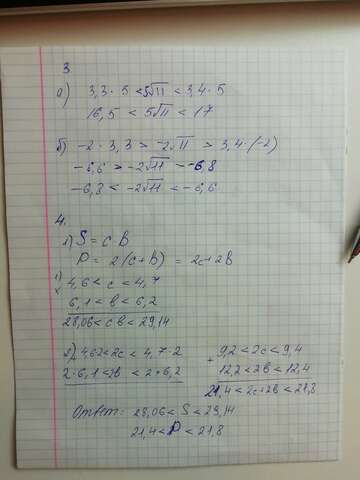 3
а) 3,3 · 5 < 5√11 < 3,4 · 5
16,5 < 5√11 < 17
б) -2 · 3,3 > -2√11 > 3,4 · (-2)
-6,6 > -2√11 > -6,8
-6,8 < -2√11 < -6,6
4.
а) S = c · в
P = 2(c+в) = 2c+2в
1) 4,6 < c < 4,7
× 6,1 < в < 6,2
28,06 < cв < 29,14
2) 4,6·2 < 2c < 4,7 · 2 + 9,2 < 2c < 9,4
2 · 6,1 < 2в < 2 · 6,2 12,2 < 2в < 12,4
21,4 < 2c+2в < 21,8
Ответ: 28,06 < S < 29,14
21,4 < P < 21,8